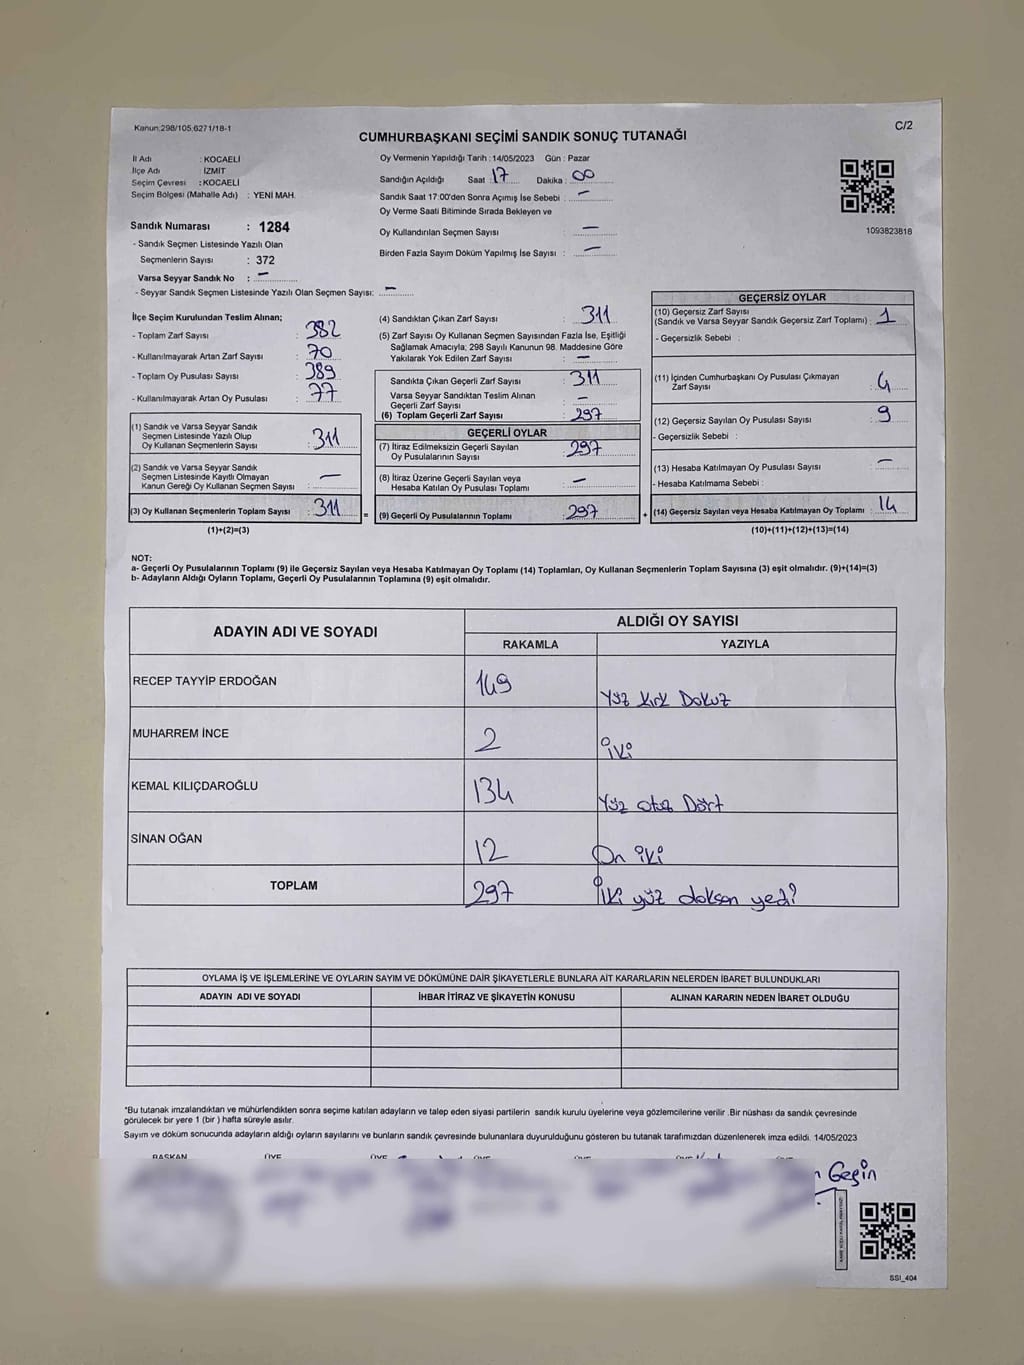 Kanun:298/105;6271/18-1
C/2
CUMHURBAŞKANI SEÇİMİ SANDIK SONUÇ TUTANAĞI
İl Adı : KOCAELİ
İlçe Adı : İZMİT
Seçim Çevresi : KOCAELİ
Seçim Bölgesi (Mahalle Adı) : YENİ MAH.
Sandık Numarası : 1284
- Sandık Seçmen Listesinde Yazılı Olan
Seçmenlerin Sayısı : 372
Varsa Seyyar Sandık No : —
- Seyyar Sandık Seçmen Listesinde Yazılı Olan Seçmen Sayısı: —
Oy Vermenin Yapıldığı Tarih : 14/05/2023 Gün : Pazar
Sandığın Açıldığı Saat : 17 Dakika : 00
Sandık Saat 17:00'den Sonra Açımış İse Sebebi : —
Oy Verme Saati Bitiminde Sırada Bekleyen ve
Oy Kullandırılan Seçmen Sayısı : —
Birden Fazla Sayım Döküm Yapılmış İse Sayısı : —
1093823818
İlçe Seçim Kurulundan Teslim Alınan;
- Toplam Zarf Sayısı : 382
- Kullanılmayarak Artan Zarf Sayısı : 70
- Toplam Oy Pusulası Sayısı : 389
- Kullanılmayarak Artan Oy Pusulası : 77
(1) Sandık ve Varsa Seyyar Sandık
Seçmen Listesinde Yazılı Olup
Oy Kullanan Seçmenlerin Sayısı : 311
(2) Sandık ve Varsa Seyyar Sandık
Seçmen Listesinde Kayıtlı Olmayan
Kanun Gereği Oy Kullanan Seçmen Sayısı : —
(3) Oy Kullanan Seçmenlerin Toplam Sayısı : 311
(1)+(2)=(3)
=
(4) Sandıktan Çıkan Zarf Sayısı : 311
(5) Zarf Sayısı Oy Kullanan Seçmen Sayısından Fazla İse, Eşitliği
Sağlamak Amacıyla; 298 Sayılı Kanunun 98. Maddesine Göre
Yakılarak Yok Edilen Zarf Sayısı : —
Sandıkta Çıkan Geçerli Zarf Sayısı : 311
Varsa Seyyar Sandıktan Teslim Alınan
Geçerli Zarf Sayısı : —
(6) Toplam Geçerli Zarf Sayısı : 297
GEÇERLİ OYLAR
(7) İtiraz Edilmeksizin Geçerli Sayılan
Oy Pusulalarının Sayısı : 297
(8) İtiraz Üzerine Geçerli Sayılan veya
Hesaba Katılan Oy Pusulası Toplamı : —
(9) Geçerli Oy Pusulalarının Toplamı : 297
+
GEÇERSİZ OYLAR
(10) Geçersiz Zarf Sayısı
(Sandık ve Varsa Seyyar Sandık Geçersiz Zarf Toplamı) : 1
- Geçersizlik Sebebi :
(11) İçinden Cumhurbaşkanı Oy Pusulası Çıkmayan
Zarf Sayısı : 4
(12) Geçersiz Sayılan Oy Pusulası Sayısı : 9
- Geçersizlik Sebebi :
(13) Hesaba Katılmayan Oy Pusulası Sayısı : —
- Hesaba Katılmama Sebebi :
(14) Geçersiz Sayılan veya Hesaba Katılmayan Oy Toplamı : 14
(10)+(11)+(12)+(13)=(14)
NOT:
a- Geçerli Oy Pusulalarının Toplamı (9) ile Geçersiz Sayılan veya Hesaba Katılmayan Oy Toplamı (14) Toplamları, Oy Kullanan Seçmenlerin Toplam Sayısına (3) eşit olmalıdır. (9)+(14)=(3)
b- Adayların Aldığı Oyların Toplamı, Geçerli Oy Pusulalarının Toplamına (9) eşit olmalıdır.
ADAYIN ADI VE SOYADI
ALDIĞI OY SAYISI
RAKAMLA YAZIYLA
RECEP TAYYİP ERDOĞAN 149 Yüz Kırk Dokuz
MUHARREM İNCE 2 İki
KEMAL KILIÇDAROĞLU 134 Yüz otuz Dört
SİNAN OĞAN 12 On iki
TOPLAM 297 İki yüz doksan yedi
OYLAMA İŞ VE İŞLEMLERİNE VE OYLARIN SAYIM VE DÖKÜMÜNE DAİR ŞİKAYETLERLE BUNLARA AİT KARARLARIN NELERDEN İBARET BULUNDUKLARI
ADAYIN ADI VE SOYADI İHBAR İTİRAZ VE ŞİKAYETİN KONUSU ALINAN KARARIN NEDEN İBARET OLDUĞU
*Bu tutanak imzalandıktan ve mühürlendikten sonra seçime katılan adayların ve talep eden siyasi partilerin sandık kurulu üyelerine veya gözlemcilerine verilir .Bir nüshası da sandık çevresinde
görülecek bir yere 1 (bir ) hafta süreyle asılır.
Sayım ve döküm sonucunda adayların aldığı oyların sayılarını ve bunların sandık çevresinde bulunanlara duyurulduğunu gösteren bu tutanak tarafımızdan düzenlenerek imza edildi. 14/05/2023
BAŞKAN ÜYE ÜYE ÜYE ÜYE ÜYE ÜYE
SSI_404